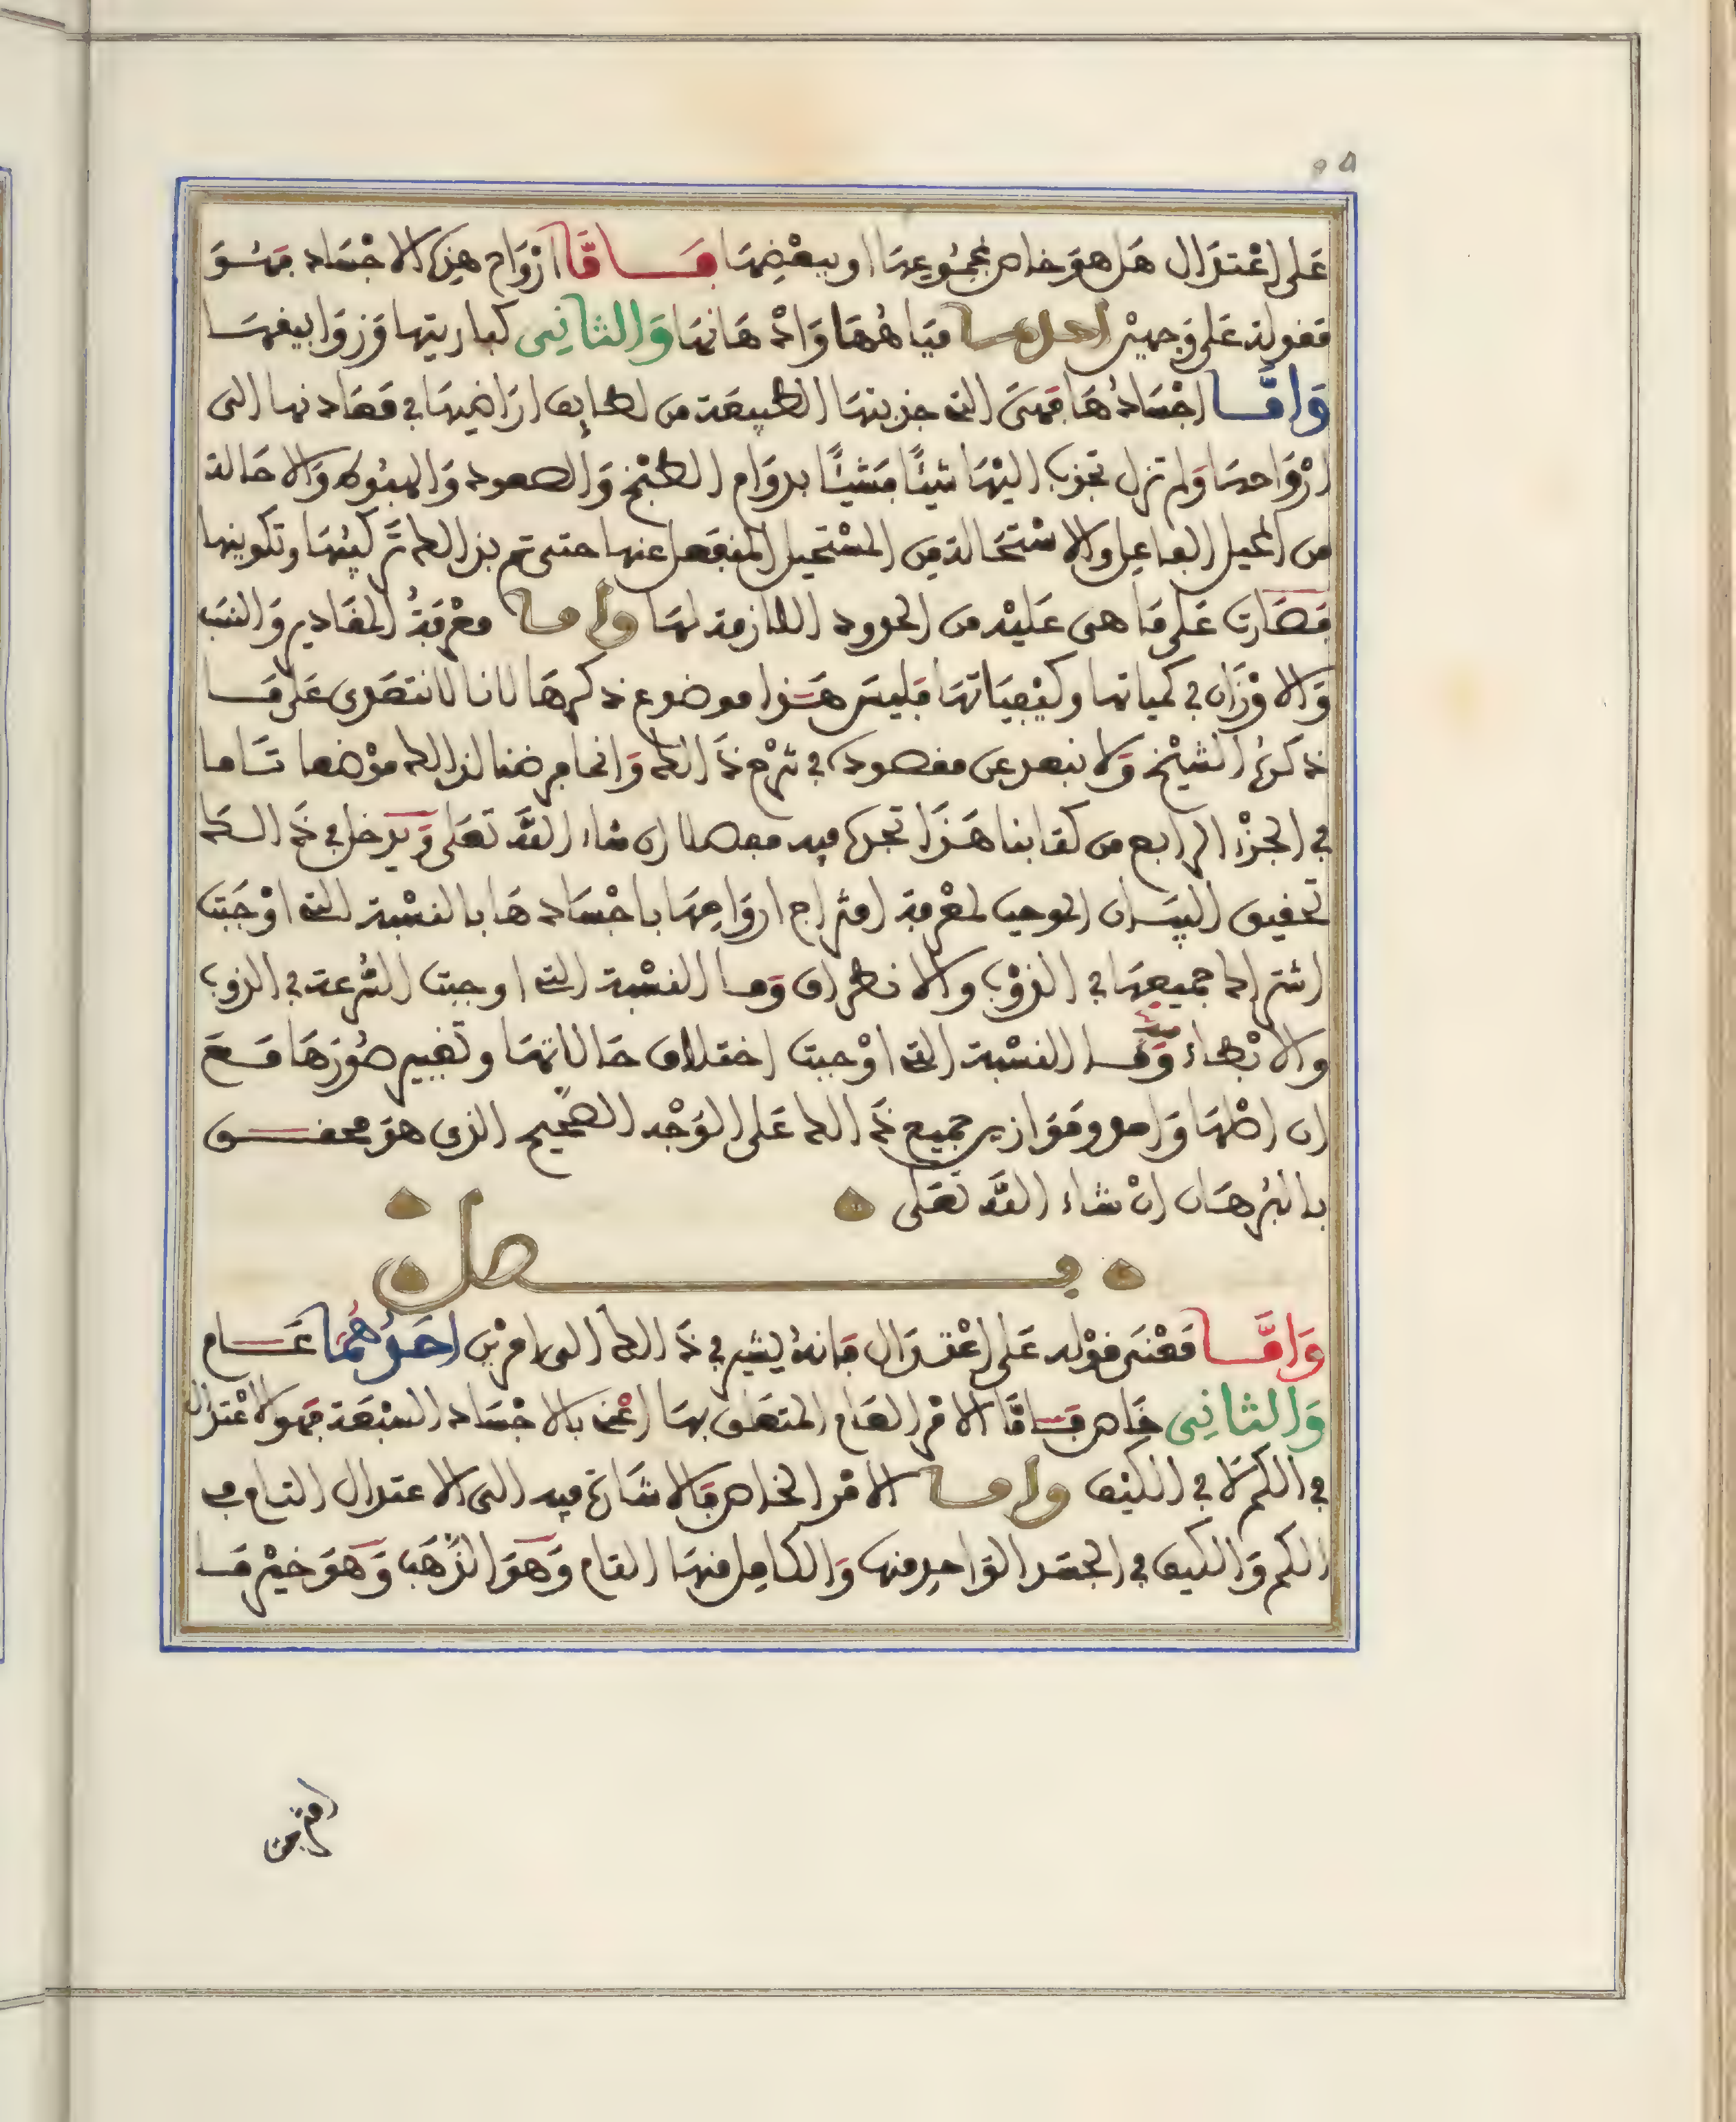 على اعتدال هل هو خاص بمجموعها او ببعضها فاما ارواح هذه الاجساد فهو
مقولة على وجهين احدهما مياهها وادهانها والثاني كباريتها وزوابيقها
واما اجسادها فهي التي جذبتها الطبيعة من لطايف اراضيها في معادنها الى
ارواحها ولم تزل تجذب اليها شيئا فشيئا بدوام الطبخ والصعود والهبوط والاحالة
من المحيل الفاعل والاستحالة من المستحيل المنفعل عنها حتى تم بذالك تركيبها وتكوينها
فصارت على ما هي عليه من الحدود اللازمة لها واما معرفة المقادير والنسب
والاوزان في كمياتها وكيفياتها فليس هذا موضوع ذكرها لانا لا نتعدى على ما
ذكره الشيخ ولا نبعد عن مقصوده في شرح ذالك وانما فرضنا لذالك موضعا تاما
في الجزء الرابع من كتابنا هذا تجده فيه مفصلا ان شاء الله تعلى ويدخل في ذالك
تحقيق البيان الموجب لمعرفة امتزاج ارواحها باجسادها بالنسبة التي اوجبت
اشتراك جميعها في الذوب والانطراق وما النسبة التي اوجبت السرعة في الذوب
والابطاء فيه وما النسبة التي اوجبت اختلاف حالاتها وتغيير صورها مع
ان اصلها واحد وموازين جميع ذالك على الوجه الصحيح الذي هو محقق
بالبرهان ان شاء الله تعلى
فصل
واما معنى قوله على اعتدال فانه يشير في ذالك الى امرين احدهما عام
والثاني خاص فاما الامر العام المتعلق بها اعني بالاجساد السبعة فهو الاعتدال
في الكم لا في الكيف واما الامر الخاص فالاشارة فيه الى الاعتدال التام في
الكم والكيف في الجسد الواحد منها والكامل منها التام وهو الذهب وهو خير ما